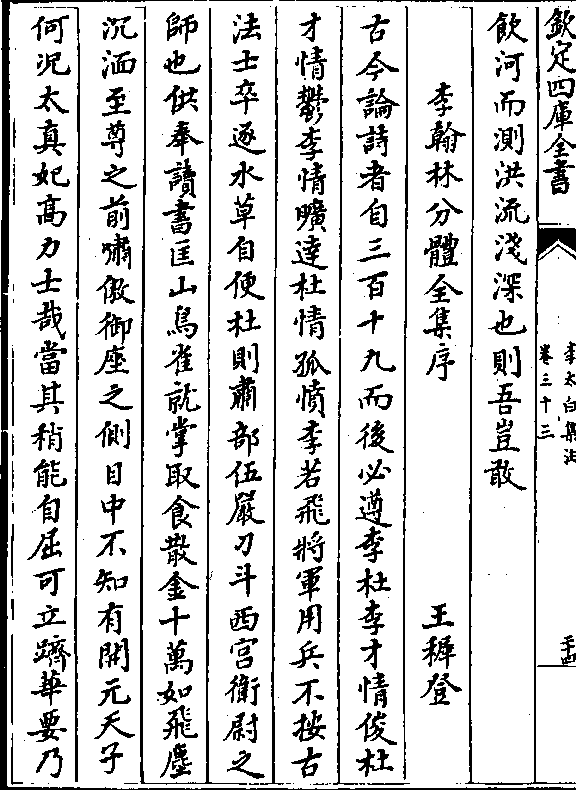 欽定四庫全書
李太白集注
卷三十三
二十四
飲河而測洪流淺深也則吾豈敢
李翰林分體全集序　王穉登
古今論詩者自三百十九而後必遵李杜李才情俊杜
才情鬱李情曠達杜情孤憤李若飛將軍用兵不按古
法士卒逐水草自便杜則肅部伍嚴刀斗西宫衛尉之
師也供奉讀書匡山鳥雀就掌取食散金十萬如飛塵
沉湎至尊之前嘯傲御座之側目中不知有開元天子
何況太真妃高力士哉當其稍能自屈可立躋華要乃